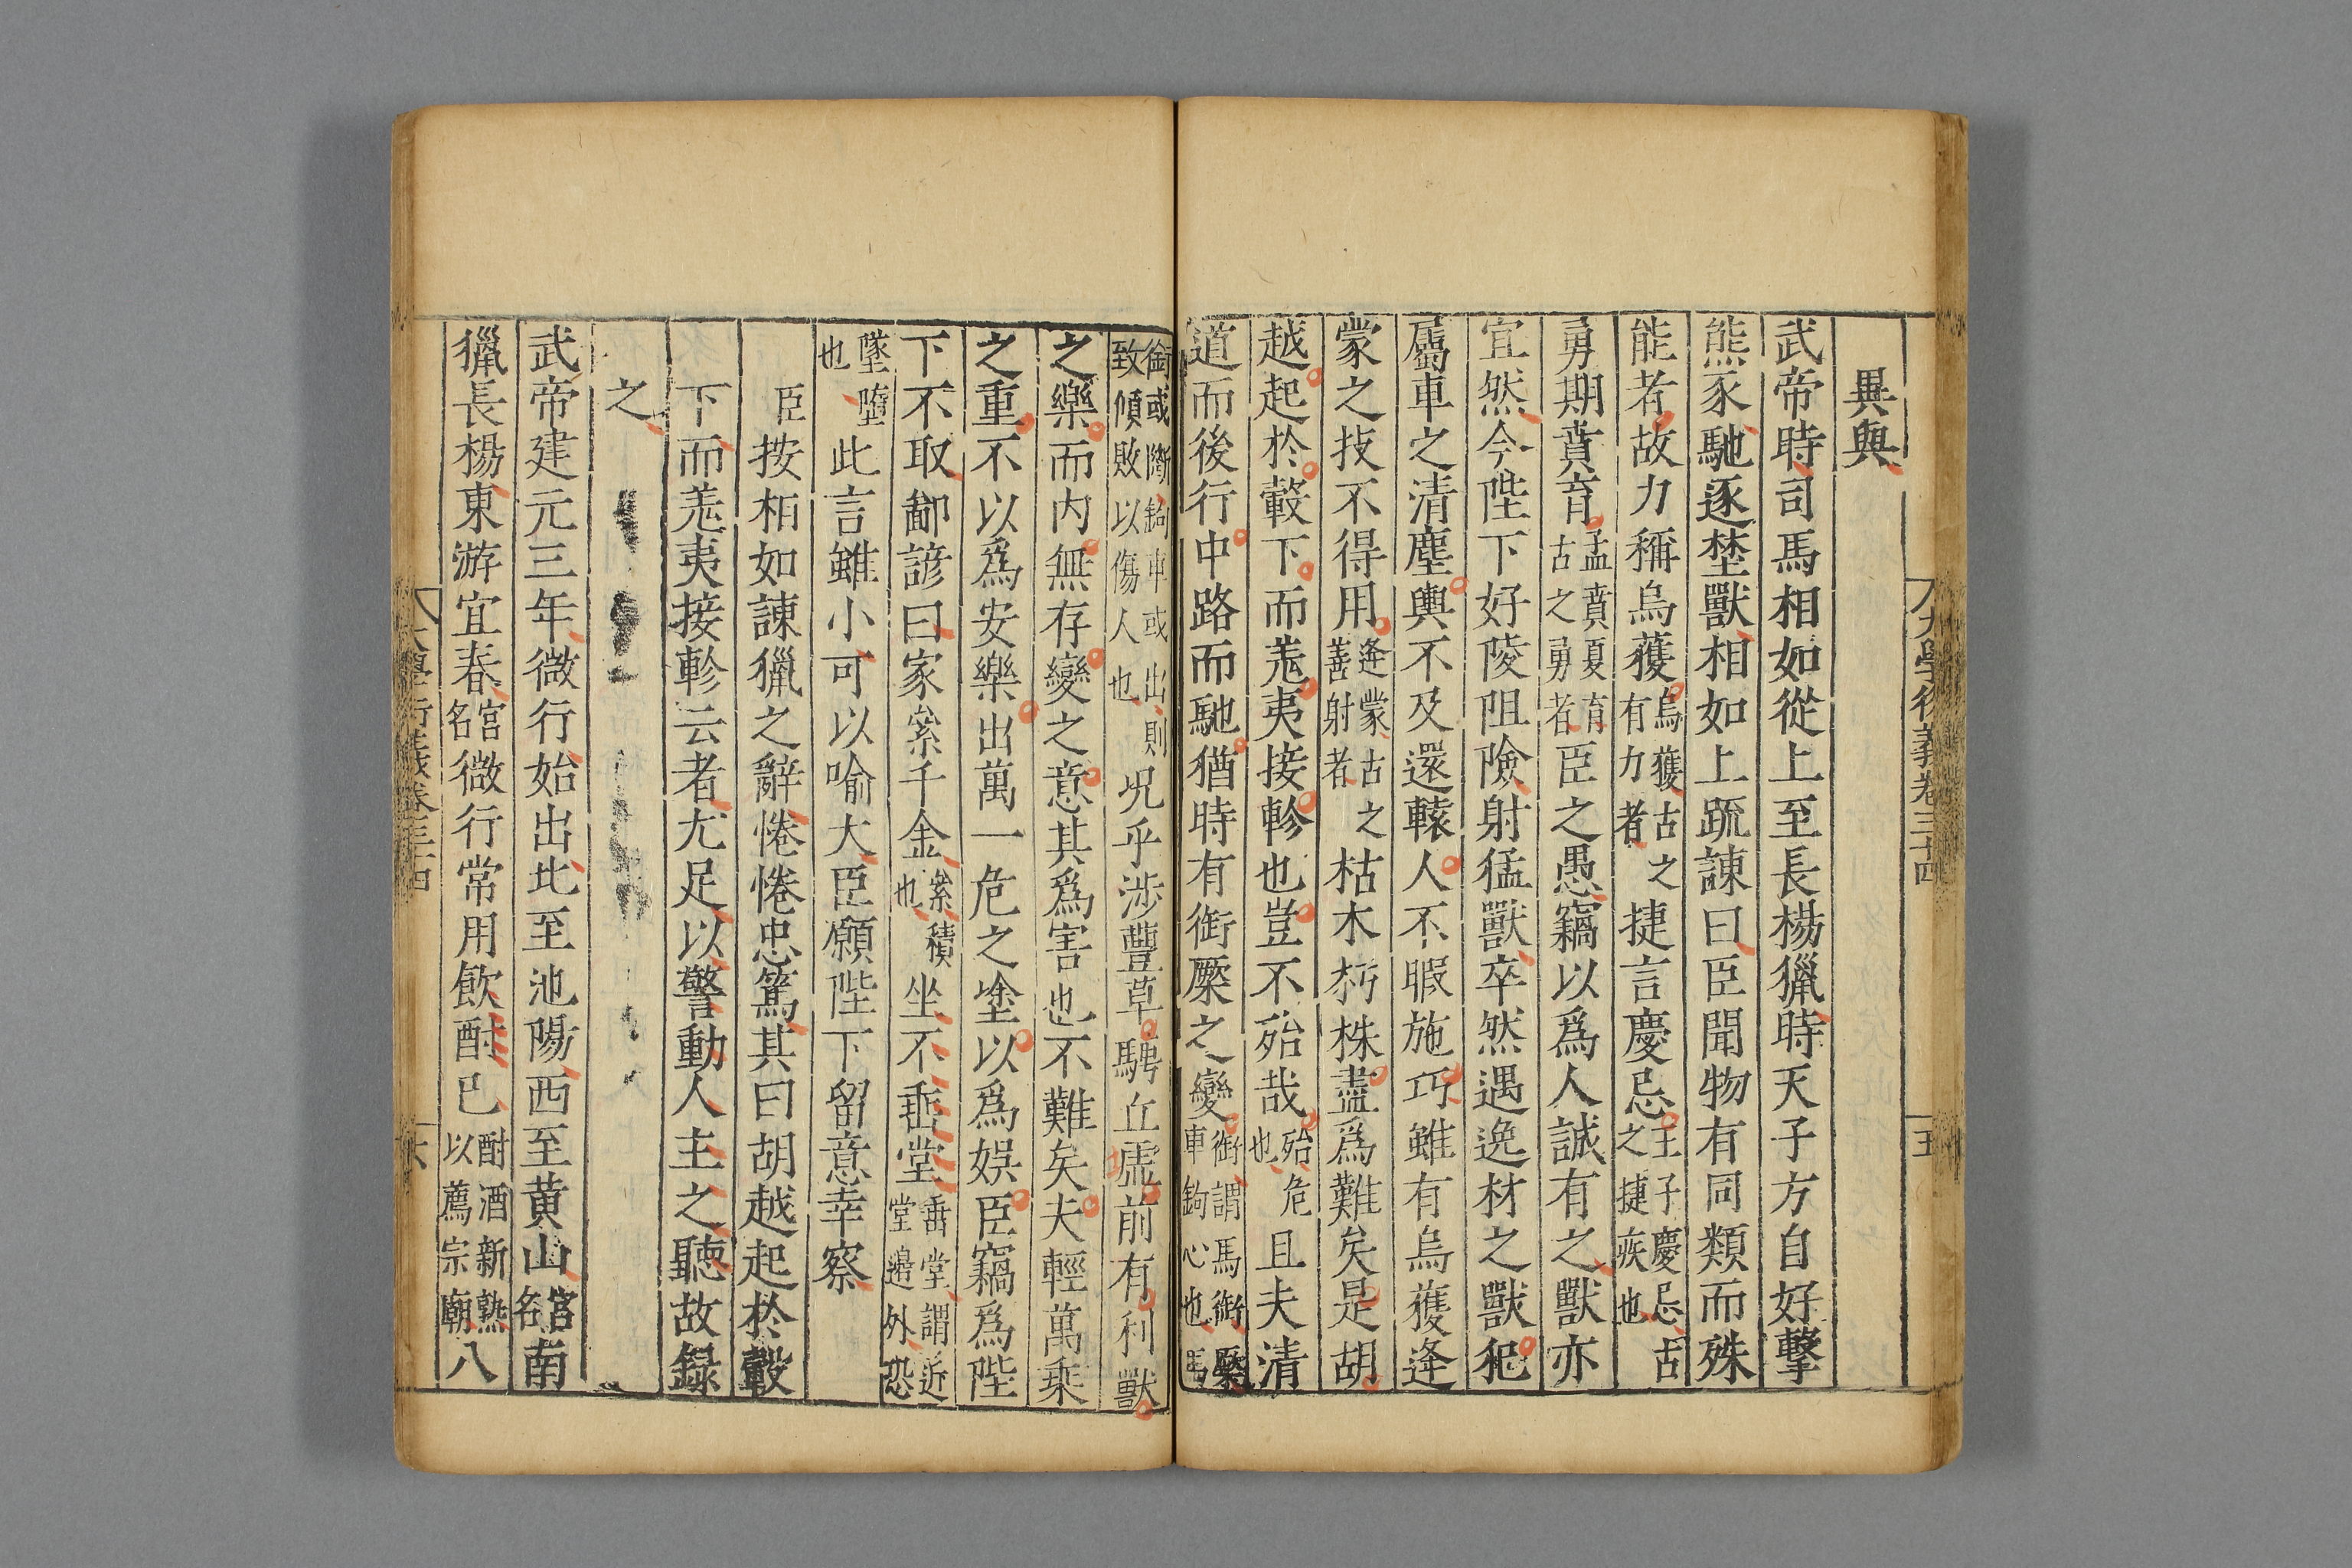 異與
武帝時司馬相如從上至長楊獵時天子方自好擊
熊豕馳逐埜獸相如上䟽諫曰臣聞物有同類而殊
能者故力稱烏獲烏獲古之有力者捷言慶忌王子慶忌古之捷疾也
勇期賁育孟賁夏育古之勇者臣之愚竊以爲人誠有之獸亦
宜然今陛下好陵阻險射猛獸卒然遇逸材之獸犯
屬車之清塵輿不及還轅人不暇施巧雖有烏獲逢
蒙之技不得用逄蒙古之善射者枯木朽株盡爲難矣是胡
越起於轂下而羗夷接軫也豈不殆哉殆危也且夫清
道而後行中路而馳猶時有銜橜之變銜謂馬銜橜車鉤心也馬
銜或斷鉤車或出則致傾敗以傷人也况乎涉豐草騁丘虛前有利獸
之樂而内無存變之意其爲害也不難矣夫輕萬乗
之重不以爲安樂出萬一危之塗以爲娯臣竊爲陛
下不取鄙諺曰家絫千金絫積也坐不垂堂垂堂謂近堂邉外恐
墜墮也此言雖小可以喻大臣願陛下留意幸察
臣按相如諫獵之辭惓惓忠篤其曰胡越起於轂
下而羗夷接軫云者尤足以警動人主之聽故録
之
武帝建元三年微行始出北至池陽西至黄山宮名南
獵長楊東游宜春宮名微行常用飲酎已酎酒新熟以薦宗廟八
大學衍義卷三十四
五
大學衍義卷三十四
六